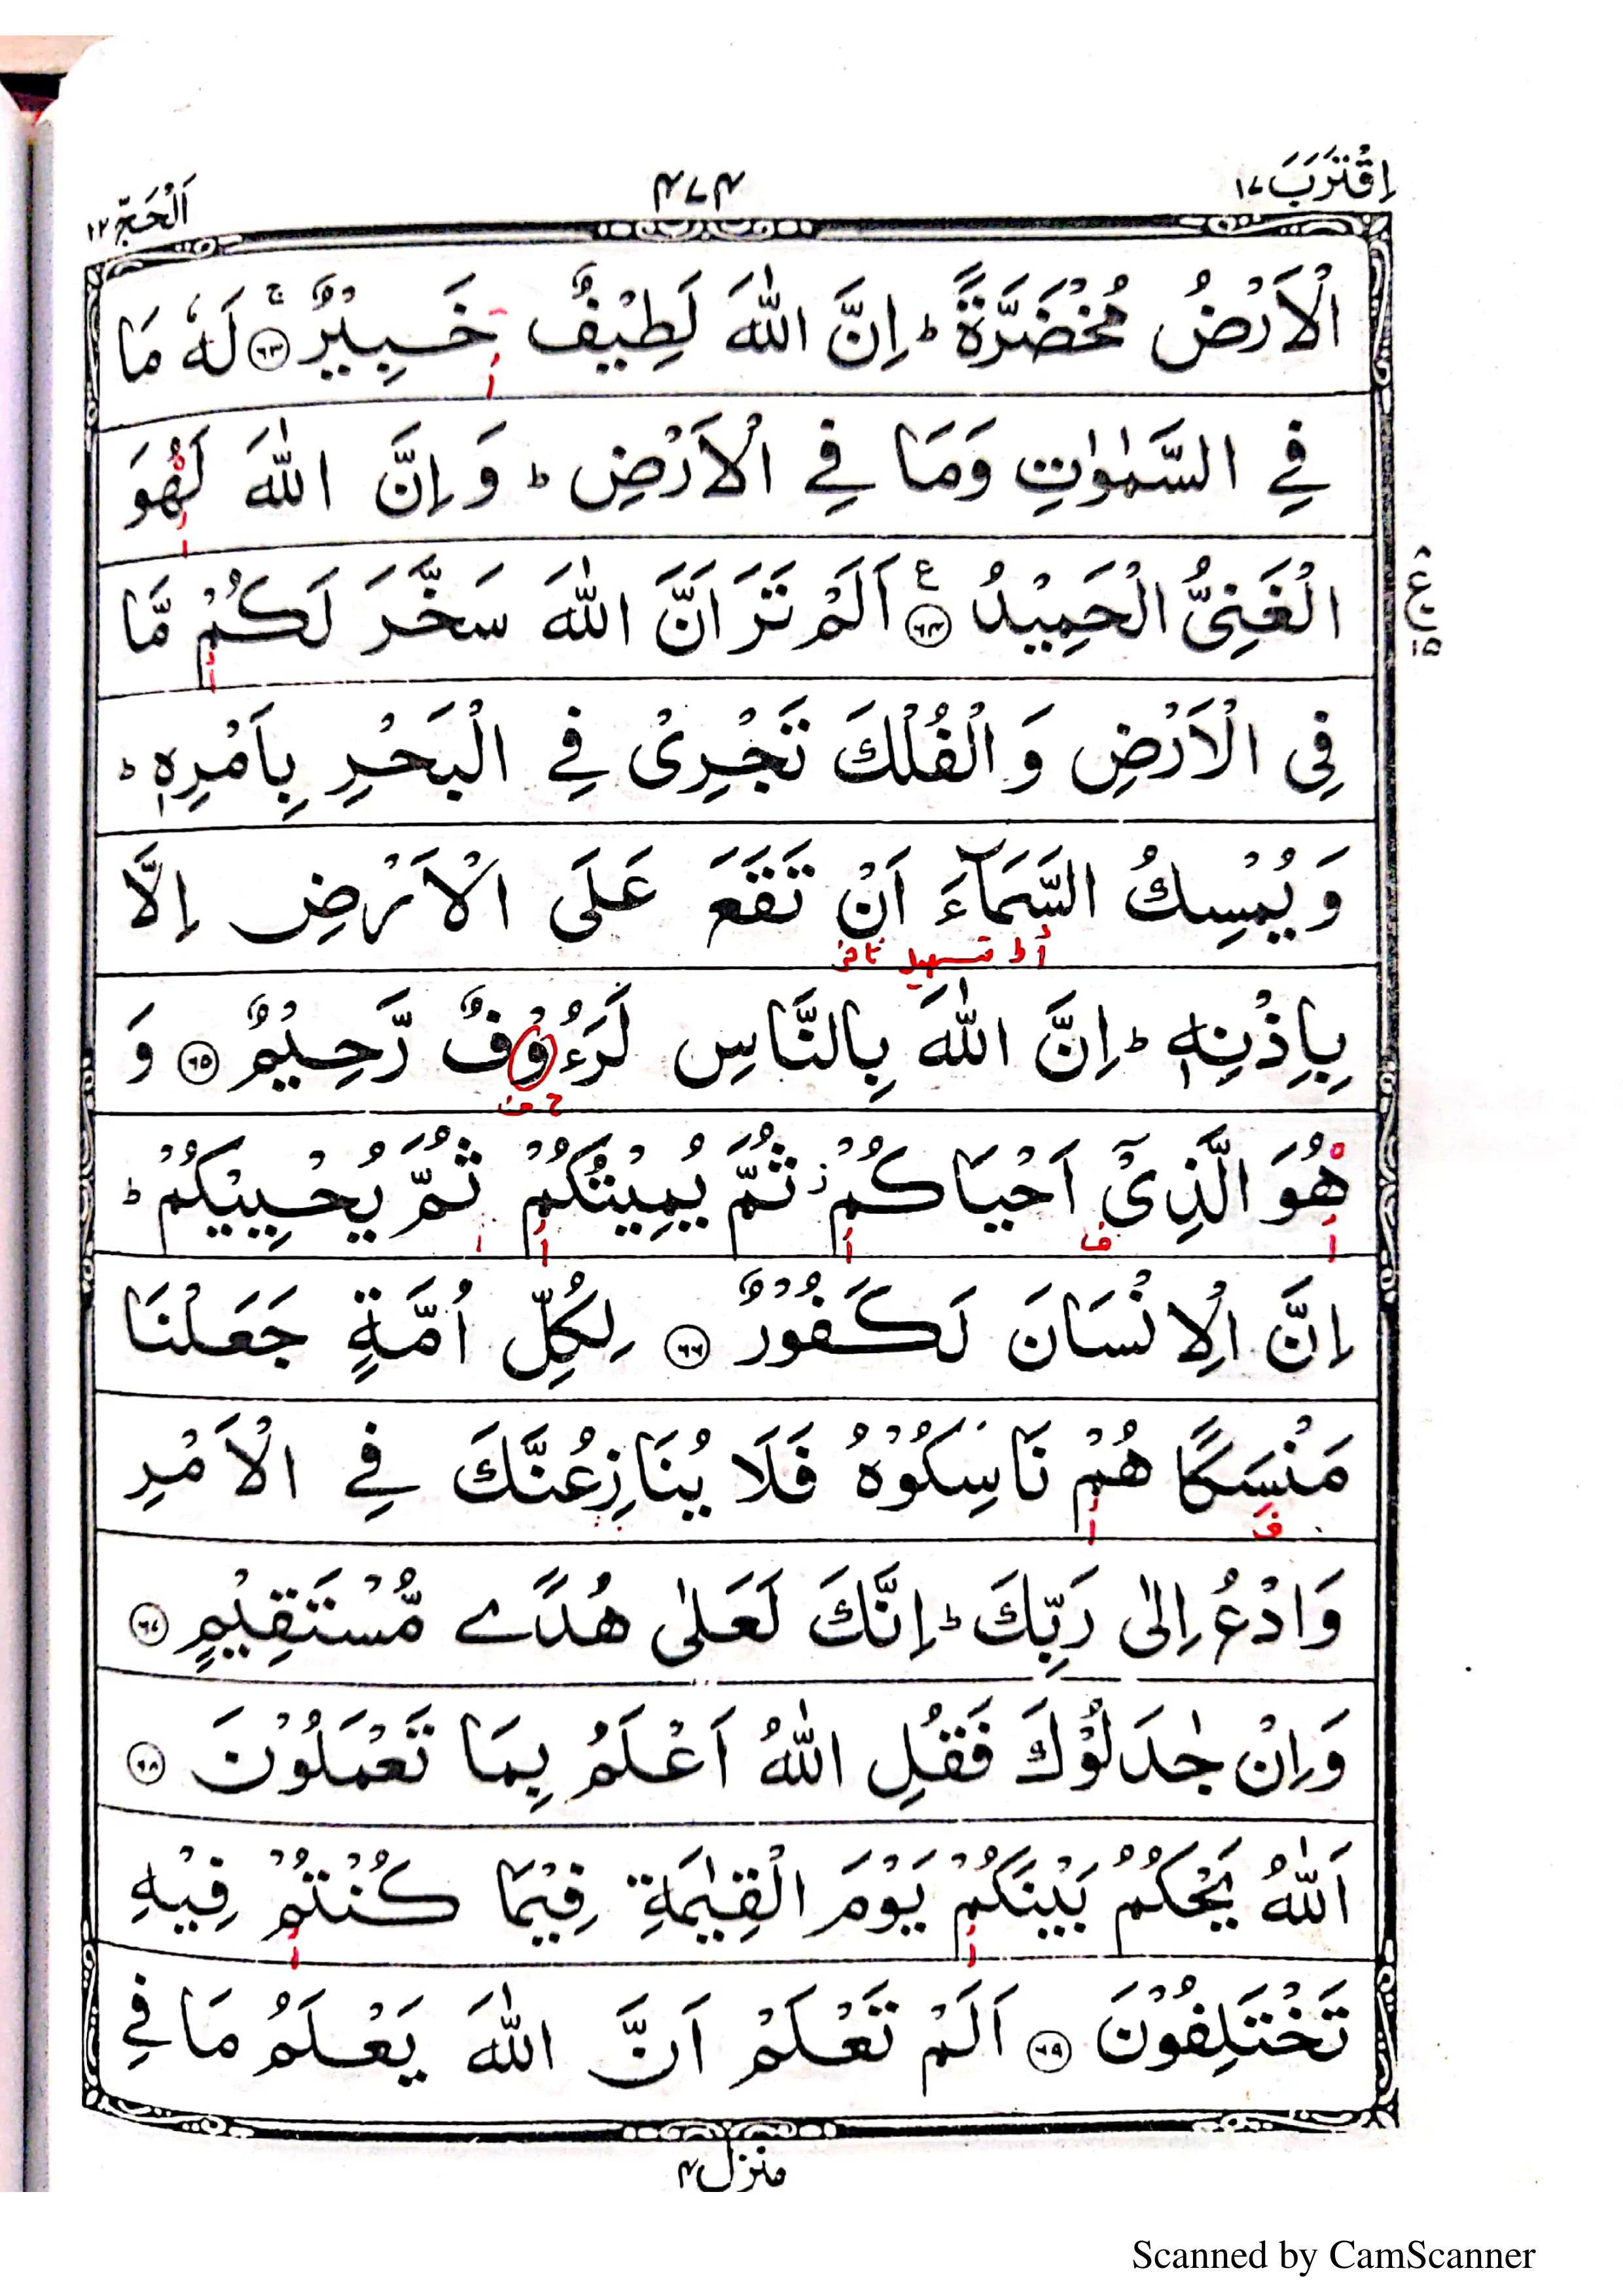 اِقْتَرَبَ ١٧
٤٧٤
اَلْحَجّ ٢٢
الْاَرْضُ مُخْضَرَّةً ؕ اِنَّ اللّٰهَ لَطِیْفٌ خَبِیْرٌ ۚ ﴿٦٣﴾ لَهٗ مَا
فِی السَّمٰوٰتِ وَمَا فِی الْاَرْضِ ؕ وَ اِنَّ اللّٰهَ لَهُوَ
الْغَنِیُّ الْحَمِیْدُ ﴿٦٤﴾ ع اَلَمْ تَرَ اَنَّ اللّٰهَ سَخَّرَ لَكُمْ مَّا
ع ٨ ١٥
فِی الْاَرْضِ وَ الْفُلْكَ تَجْرِیْ فِی الْبَحْرِ بِاَمْرِهٖ ؕ
وَ یُمْسِكُ السَّمَآءَ اَنْ تَقَعَ عَلَی الْاَرْضِ اِلَّا
تسهيل
بِاِذْنِهٖ ؕ اِنَّ اللّٰهَ بِالنَّاسِ لَرَءُوْفٌ رَّحِیْمٌ ﴿٦٥﴾ وَ
هُوَ الَّذِیْۤ اَحْیَاكُمْ ؗ ثُمَّ یُمِیْتُكُمْ ثُمَّ یُحْیِیْكُمْ ؕ
اِنَّ الْاِنْسَانَ لَكَفُوْرٌ ﴿٦٦﴾ لِكُلِّ اُمَّةٍ جَعَلْنَا
مَنْسَكًا هُمْ نَاسِكُوْهُ فَلَا یُنَازِعُنَّكَ فِی الْاَمْرِ
وَادْعُ اِلٰی رَبِّكَ ؕ اِنَّكَ لَعَلٰی هُدًی مُّسْتَقِیْمٍ ﴿٦٧﴾
وَاِنْ جٰدَلُوْكَ فَقُلِ اللّٰهُ اَعْلَمُ بِمَا تَعْمَلُوْنَ ﴿٦٨﴾
اَللّٰهُ یَحْكُمُ بَیْنَكُمْ یَوْمَ الْقِیٰمَةِ فِیْمَا كُنْتُمْ فِیْهِ
تَخْتَلِفُوْنَ ﴿٦٩﴾ اَلَمْ تَعْلَمْ اَنَّ اللّٰهَ یَعْلَمُ مَا فِی
منزل ٤
Scanned by CamScanner